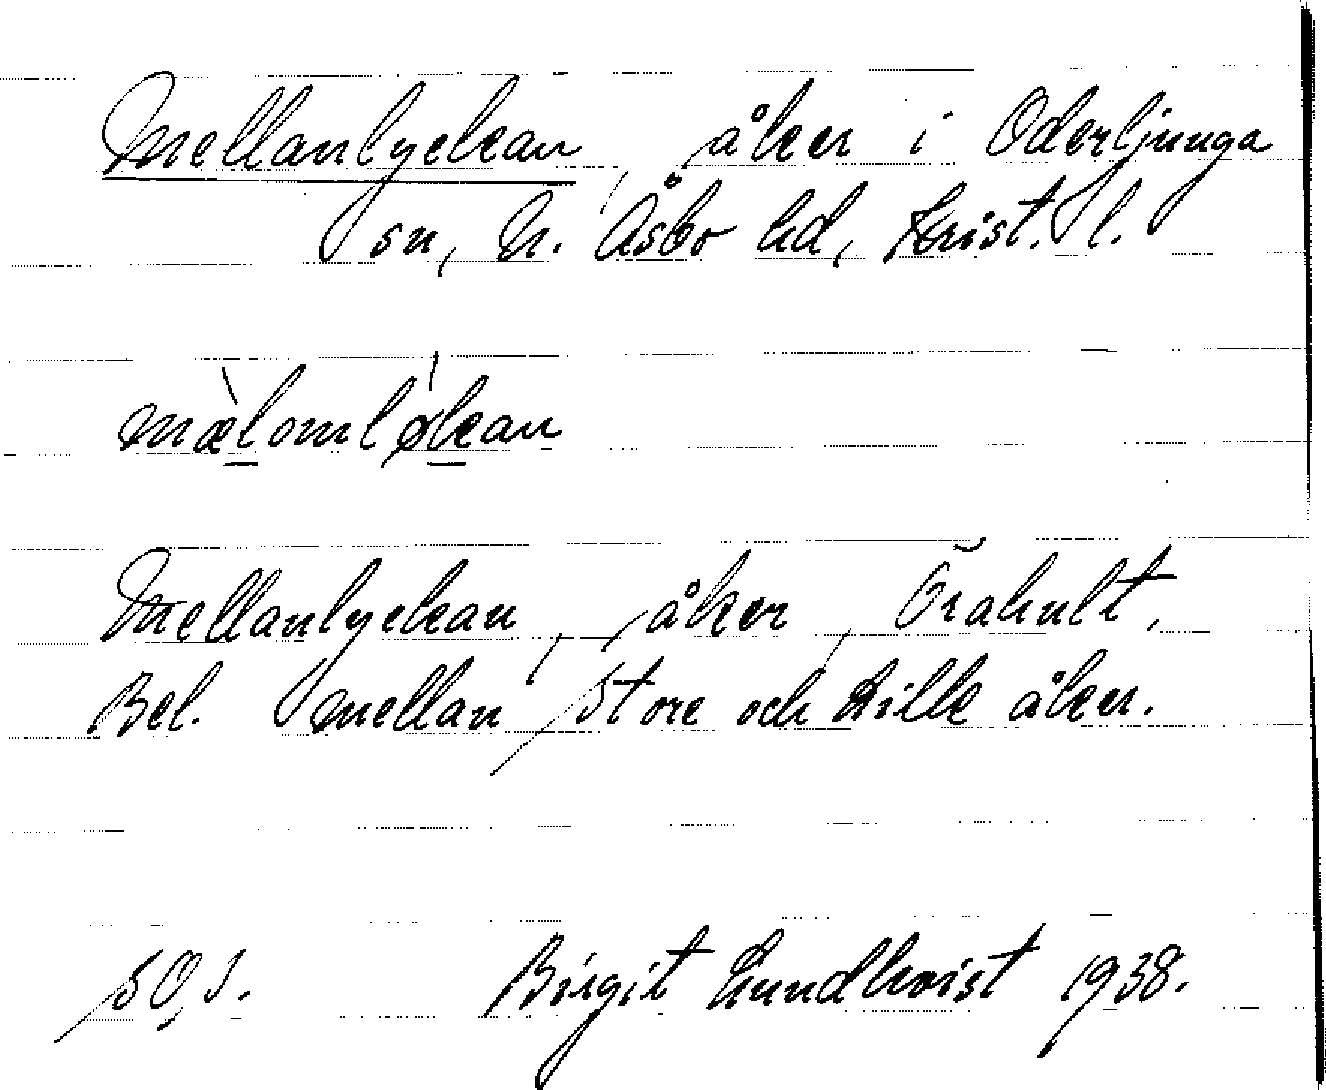 Mellanlyckan, åker i Oderljunga
sn, N. Åsbo hd, Krist. l.
mælomløkan
Mellanlyckan, åker, Örahult,
Bel. mellan Store och Lille åker.
Birgit Lundkvist 1938.